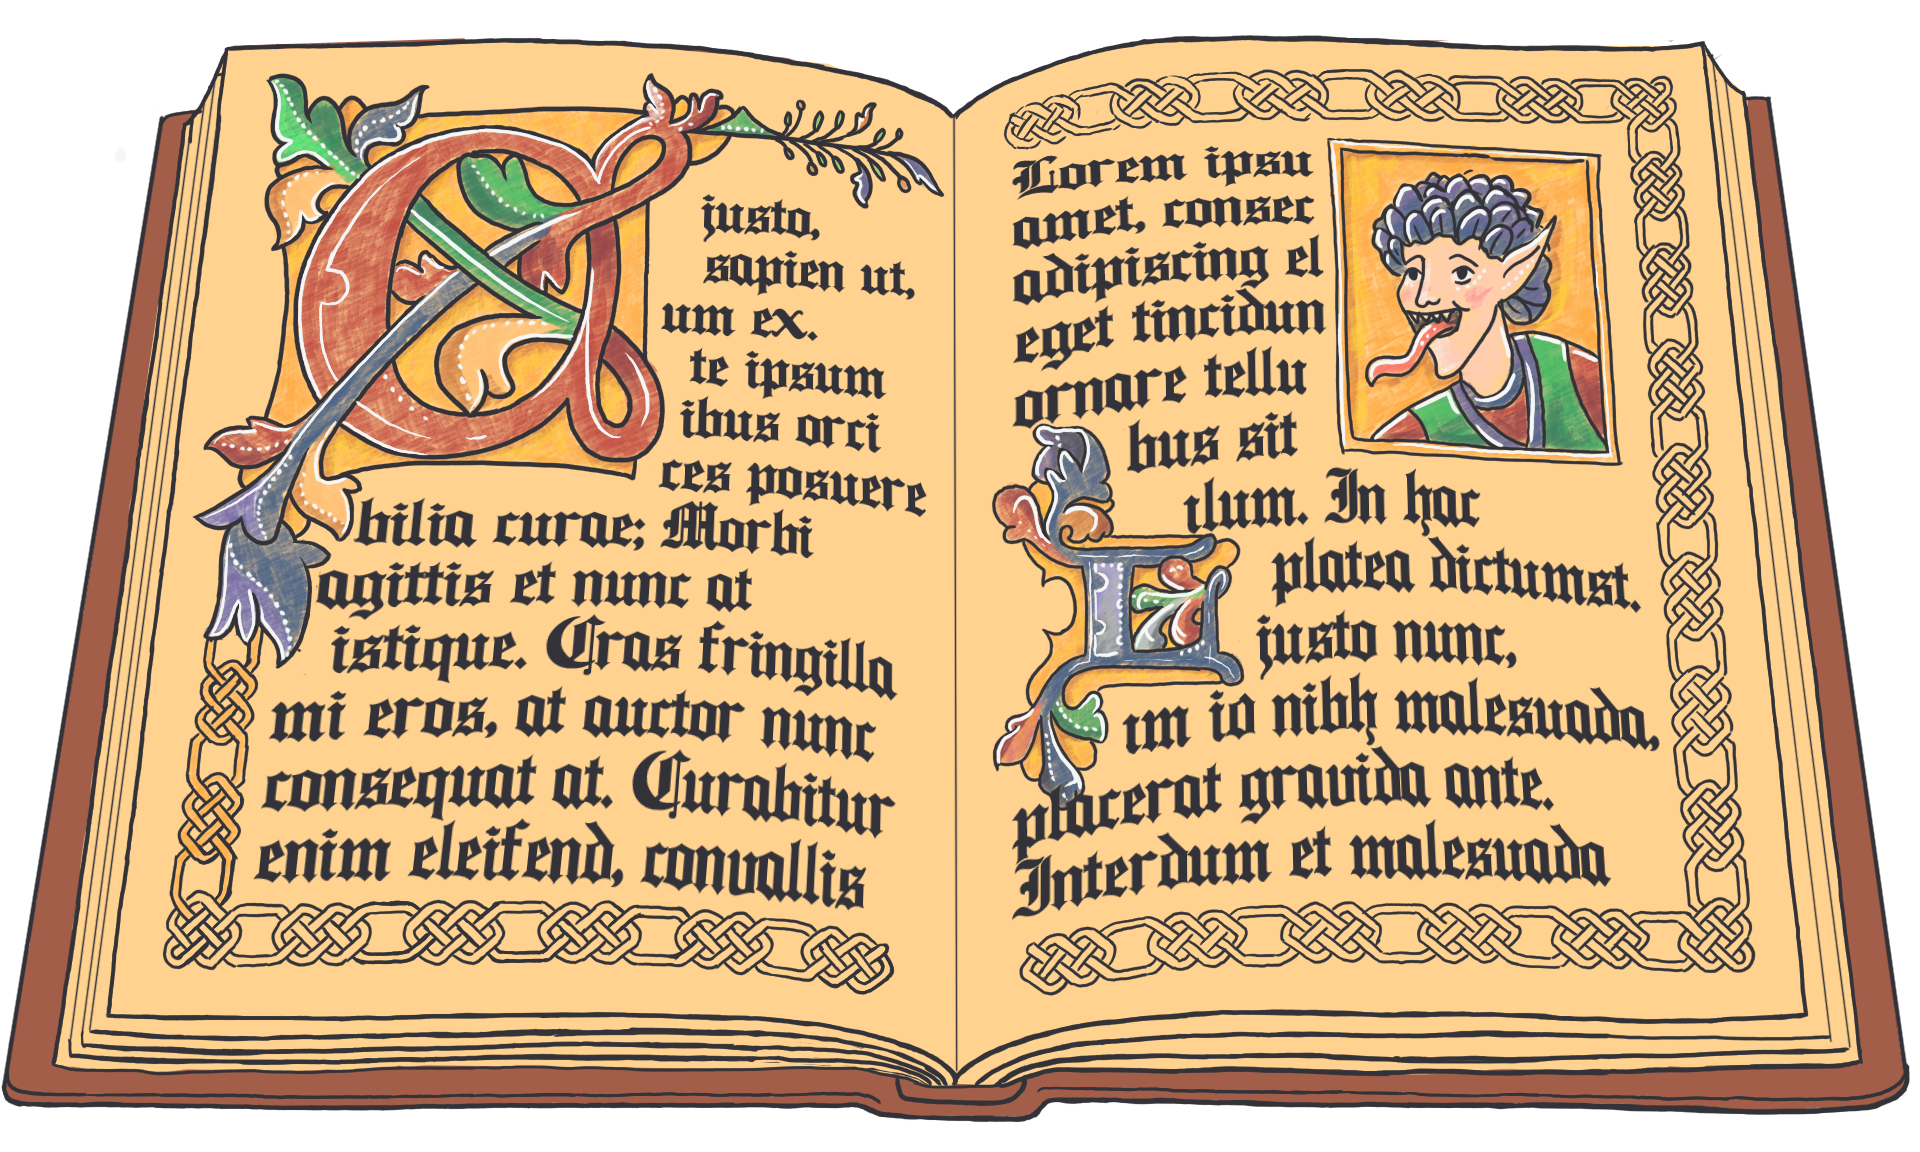 C
justo,
sapien ut,
um ex.
te ipsum
ibus orci
ces posuere
bilia curae; Morbi
agittis et nunc at
istique. Cras fringilla
mi eros, at auctor nunc
consequat at. Curabitur
enim eleifend, convallis
Lorem ipsu
amet, consec
adipiscing el
eget tincidun
ornare tellu
bus sit
ılum. In hac
platea dictumst.
E
justo nunc,
ım ia nibh malesuada,
placerat gravida ante.
Interdum et malesuada